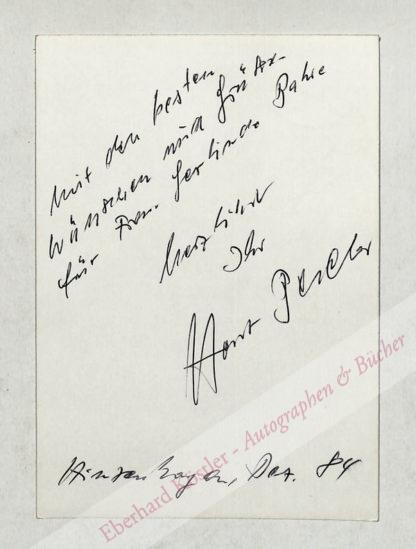 Mit den besten
Wünschen und Grüßen
für Frau Gerlinde Bahre
herzlichst
Ihr
Horst
Hinzenhagen, Dez. 84
Eberhard Köstler - Autographen & Bücher